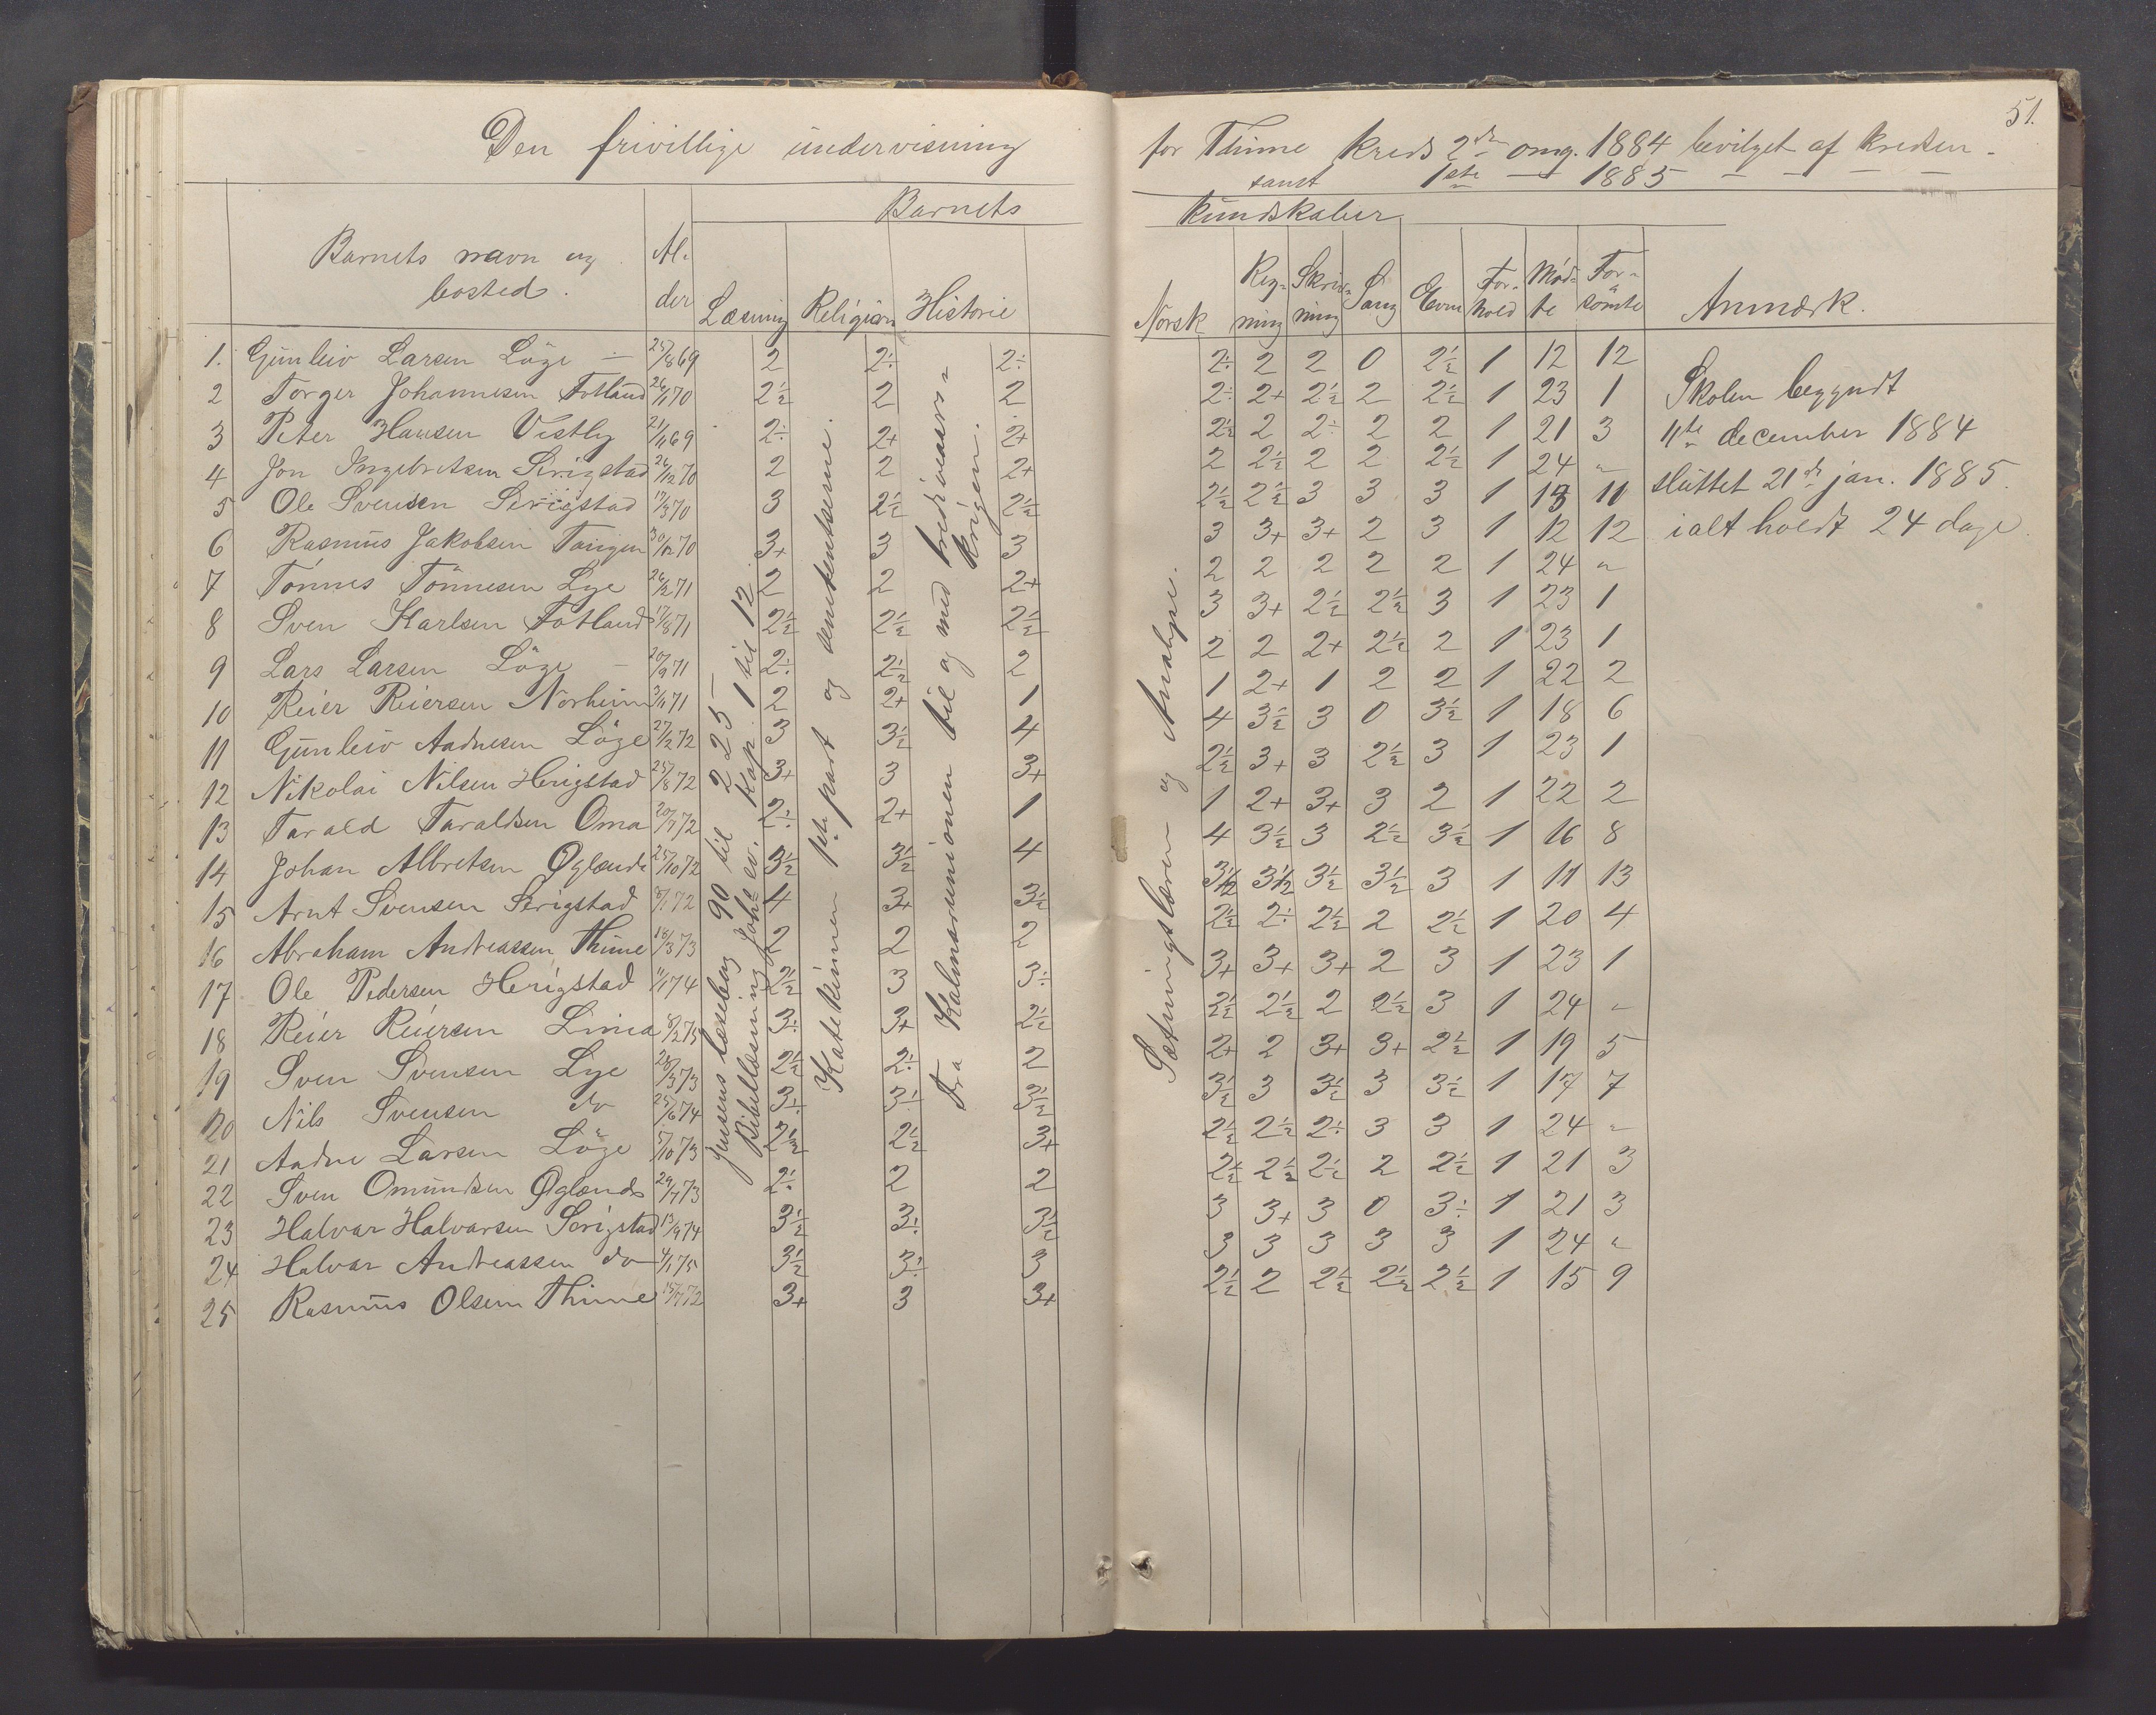 Den frivillige undervisning
Barnets
Barnets navn og bosted.
Al-
der
Læsning Religion Historie
1. Gunleiv Larsen Löge — 25/8 69 2 2÷ 2÷
2 Torger Johannesen Fotland 26/1 70 2½ 2 2
3 Peter Hansen Vestly 21/11 69 2÷ 2+ 2+
4 Jon Ingebretsen Serigstad 26/12 70 2 2 2+
5 Ole Svensen Serigstad 17/3 70 3 2½ 2½
6 Rasmus Jakobsen Tangen 30/12 70 3+ 3 3
7 Tönnes Tönnesen Lye 26/2 71 2 2 2+
8 Sven Karlsen Fotland 17/8 71 2½ 2½ 2½
9 Lars Larsen Löge — 20/9 71 2÷ 2½ 2
10 Reier Reiersen Norheim 3/11 71 2 2+ 1
11 Gunleiv Aadnesen Löge 27/2 72 3 3½ 4
12 Nikolai Nilsen Herigstad 25/8 72 3+ 3 3+
13 Tarald Taraldsen Oma 20/7 72 2÷ 2+ 1
14 Johan Albretsen Øglænd 25/10 72 3½ 3½ 4
15 Arnt Svensen Serigstad 8/1 72 4 3+ 3½
16 Abraham Andreassen Thime 18/3 73 2 2 2
17 Ole Pedersen Herigstad 11/1 74 2½ 3 3÷
18 Reier Reiersen Lima 8/2 75 3÷ 3+ 2½
19 Sven Svensen Lye 28/3 73 2½ 2÷ 2
20 Nils Svensen do 25/6 74 3÷ 3÷ 3½
21 Aadne Larsen Löge 5/10 73 2½ 2½ 3+
22 Sven Omundsen Øglænd 29/7 73 2÷ 2 2
23 Halvar Halvarsen Serigstad 13/9 74 3½ 3÷ 3½
24 Halvar Andreassen do 4/1 75 3½ 3÷ 3
25 Rasmus Olsen Thime 15/7 72 3+ 3 3+
Jensens læsebog 90 til 225—
Bibellæsning Johs ev. kap. 1 til 12.
Katekismen 1ste part og sentensene.
Fra Kalmarunionen til og med trediveaars-
krigen.
51.
for Thime kreds 2den omg. 1884 bevilget af kredsen -
samt 1ste — 1885 — — — —
kundskaber
Norsk
Reg-
ning
Skriv-
ning
Sang
Evne
For-
hold
Möd-
te
For-
sömte
Anmærk.
Sætningslæren og Analyse.
2÷ 2 2 0 2½ 1 12 12
2÷ 2+ 2½ 2 2½ 1 23 1
2½ 2 2÷ 2 2 1 21 3
2 2½ 2 2 2½ 1 24 "
2½ 2½ 3 3 3 1 13 11
3 3+ 3+ 2 3 1 12 12
2 2 2 2 2 1 24 "
3 3+ 2½ 2½ 3 1 23 1
2 2 2+ 2½ 2 1 23 1
1 2+ 1 2 2 1 22 2
4 3½ 3 0 3½ 1 18 6
2½ 3+ 3 2½ 3 1 23 1
1 2+ 3+ 3 2 1 22 2
4 3½ 3 2½ 3½ 1 16 8
3½ 3½ 3½ 3½ 3 1 11 13
2½ 2÷ 2½ 2 2½ 1 20 4
3+ 3+ 3+ 2 3 1 23 1
2½ 2½ 2 2½ 3 1 24 "
2+ 2 3+ 3+ 2½ 1 19 5
3½ 3 3½ 3 3½ 1 17 7
2½ 2½ 2÷ 3 3 1 24 "
2½ 2½ 2½ 2 2½ 1 21 3
3 3+ 3 0 3÷ 1 21 3
3 3 3 3 3 1 24 "
2½ 2 2½ 2½ 2½ 1 15 9
Skolen begyndt
11te december 1884
sluttet 21de jan. 1885.
ialt holdt 24 dage.